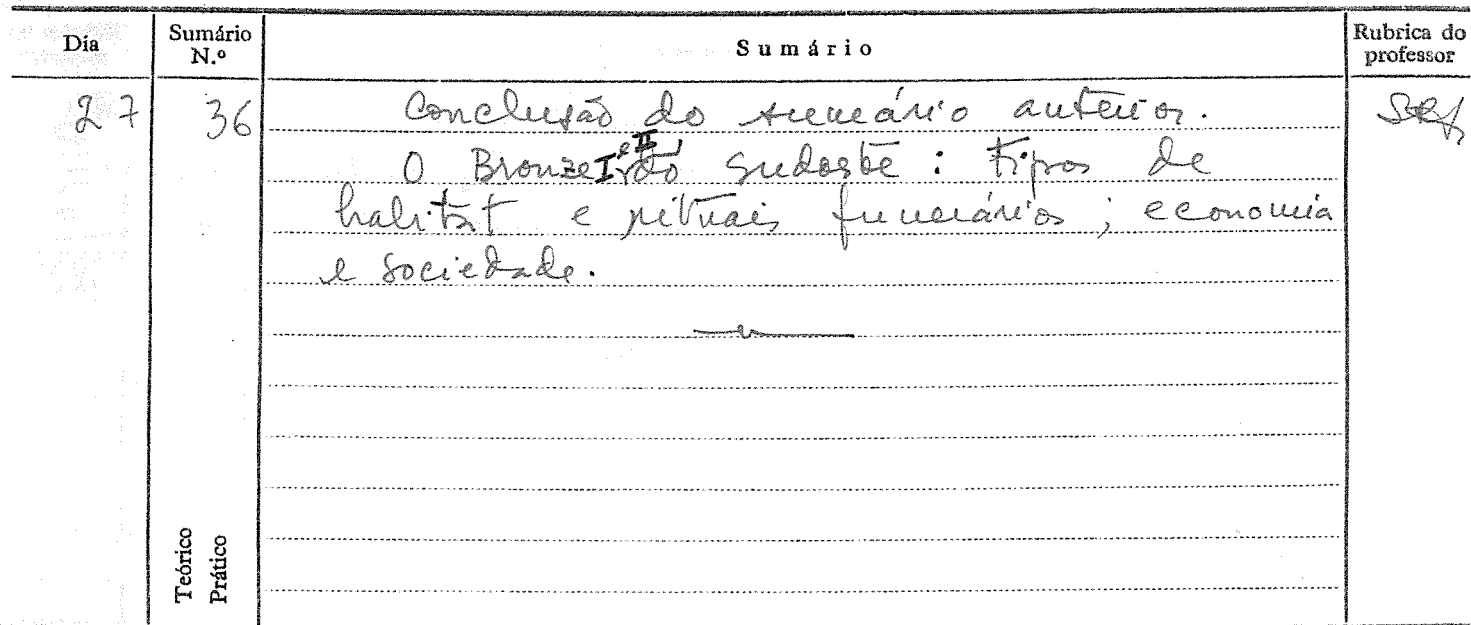 Dia Sumário N.º Sumário Rubrica do professor
27 36 Conclusão do sumário anterior.
O Bronze I e II do Sudoeste: tipos de
habitat e rituais funerários; economia
e sociedade.
Teórico
Prático